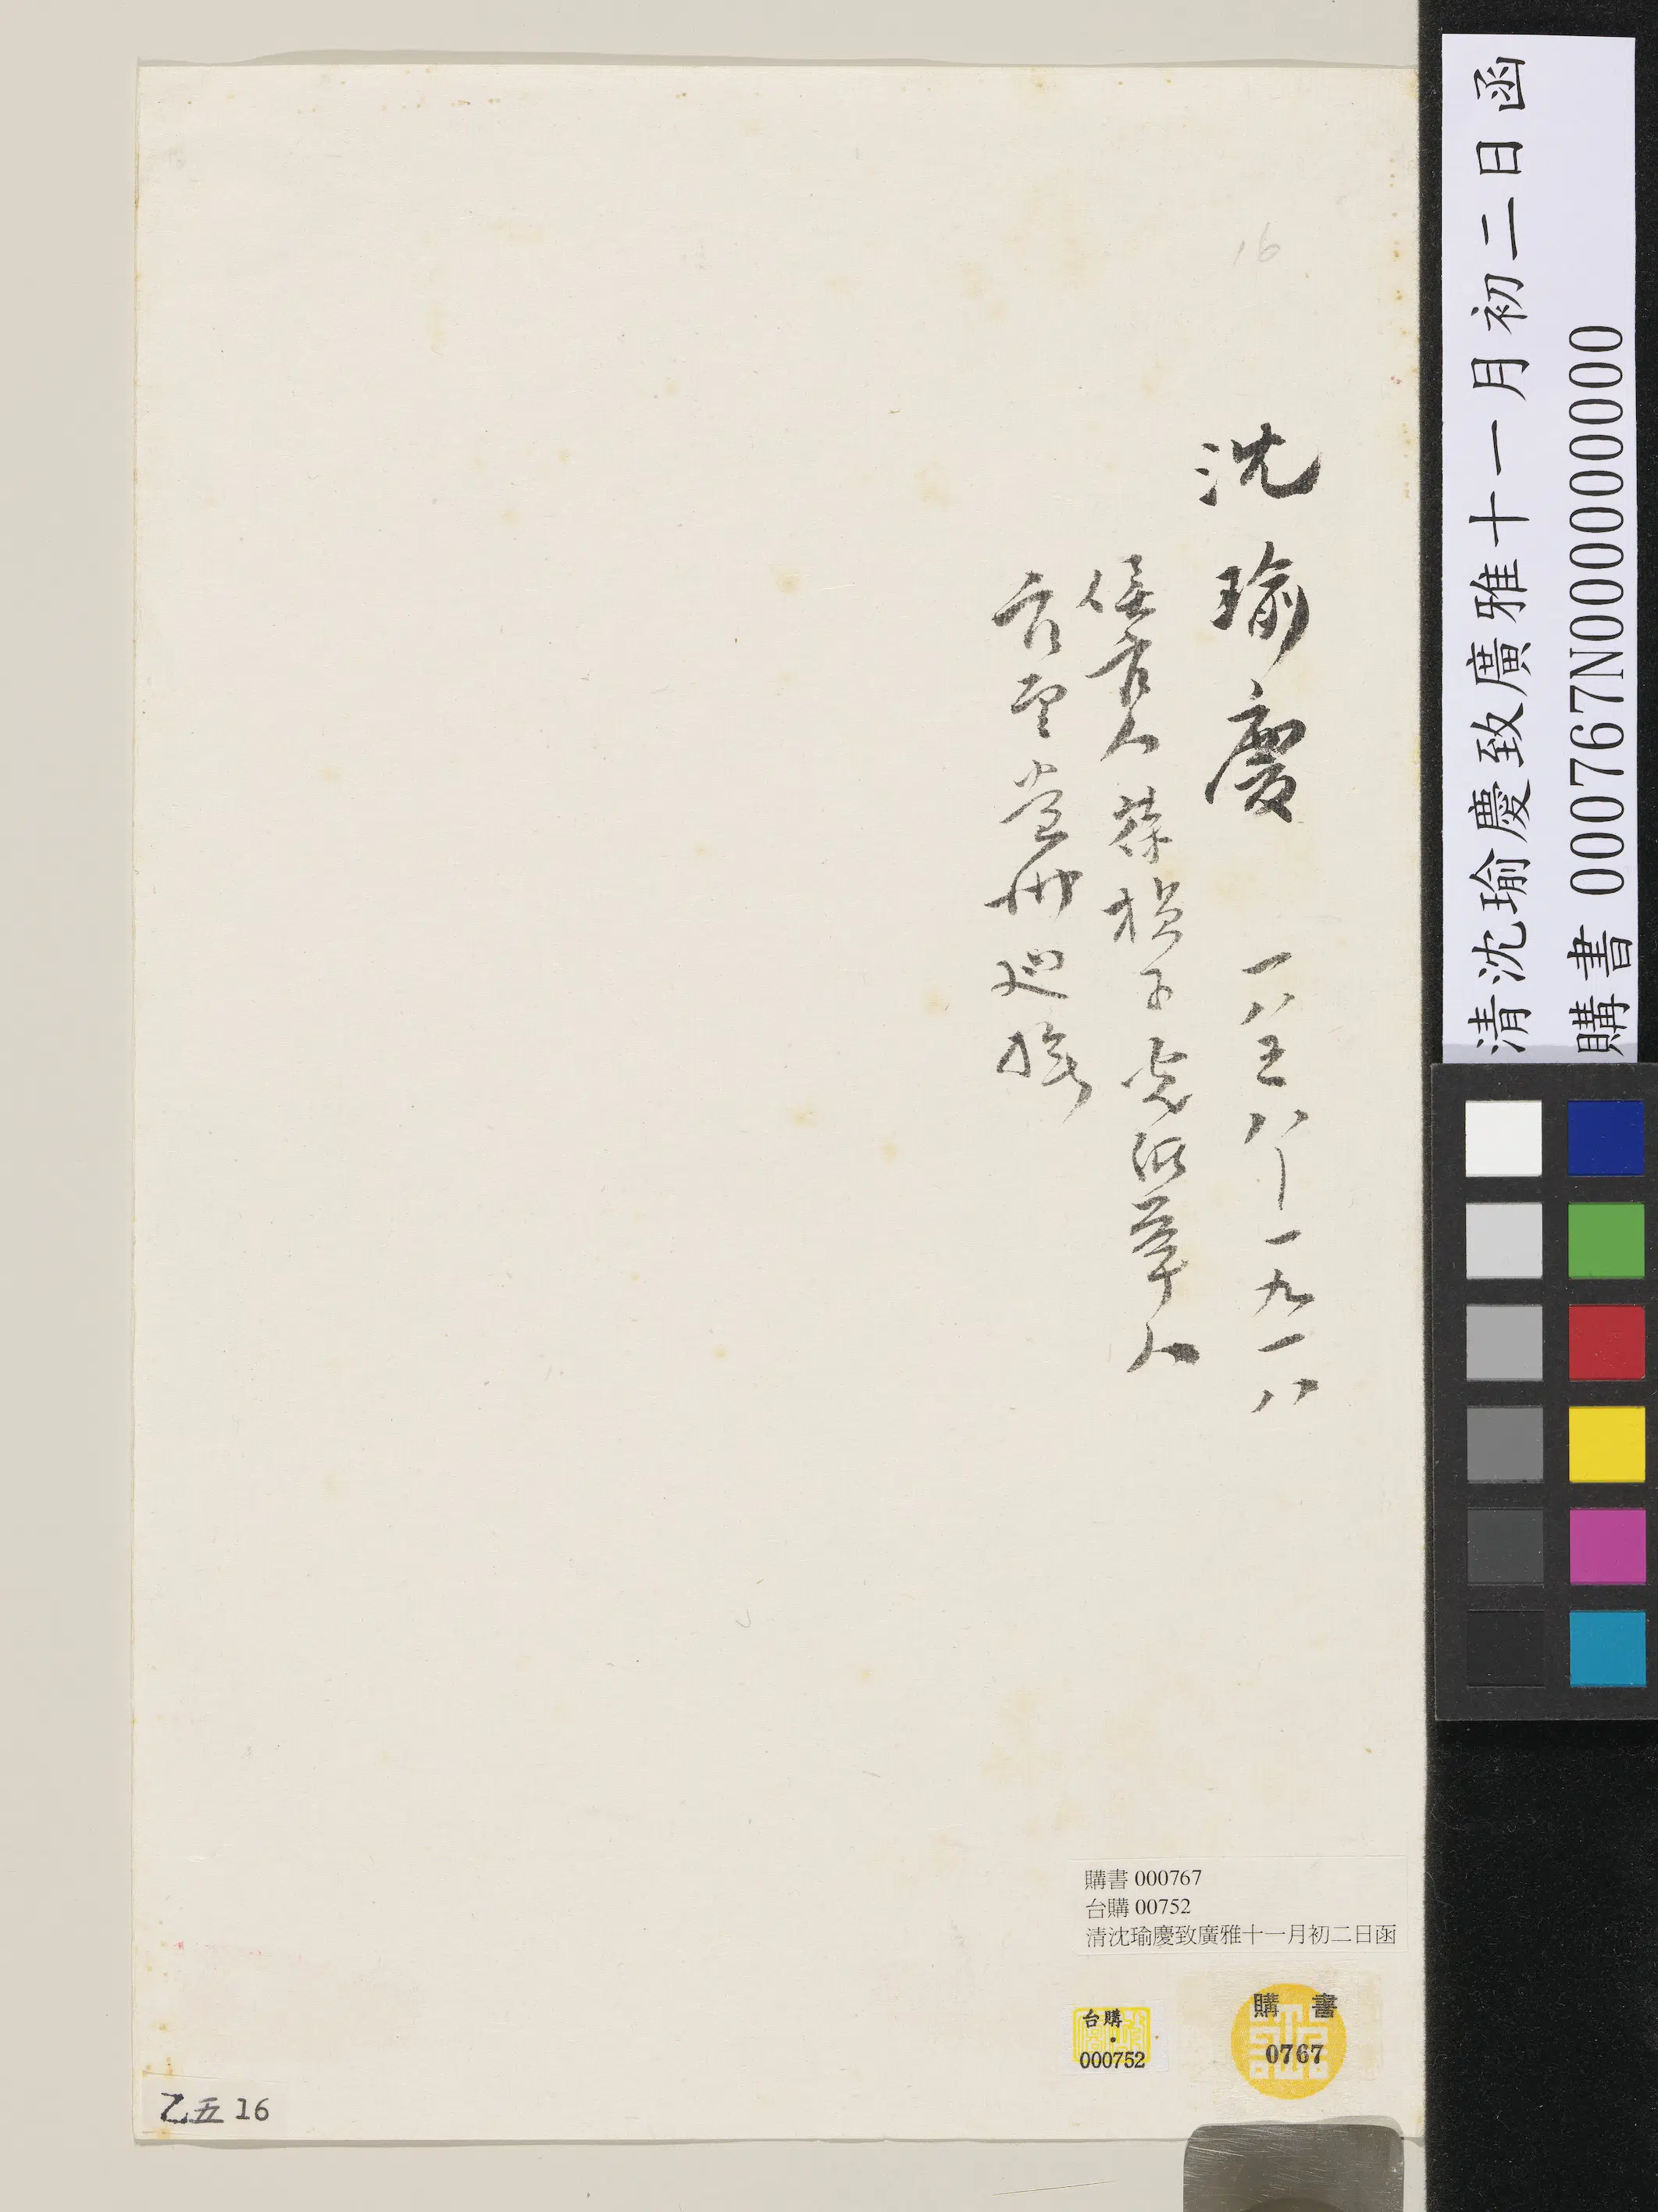 16
沈瑜慶 一八五八—一九一八
侯官人 葆楨子 光緒舉人
官至貴州巡撫
清沈瑜慶致廣雅十一月初二日函
購書 000767N000000000
購書 000767
台購 00752
清沈瑜慶致廣雅十一月初二日函
台購
000752
購書
0767
乙五 16